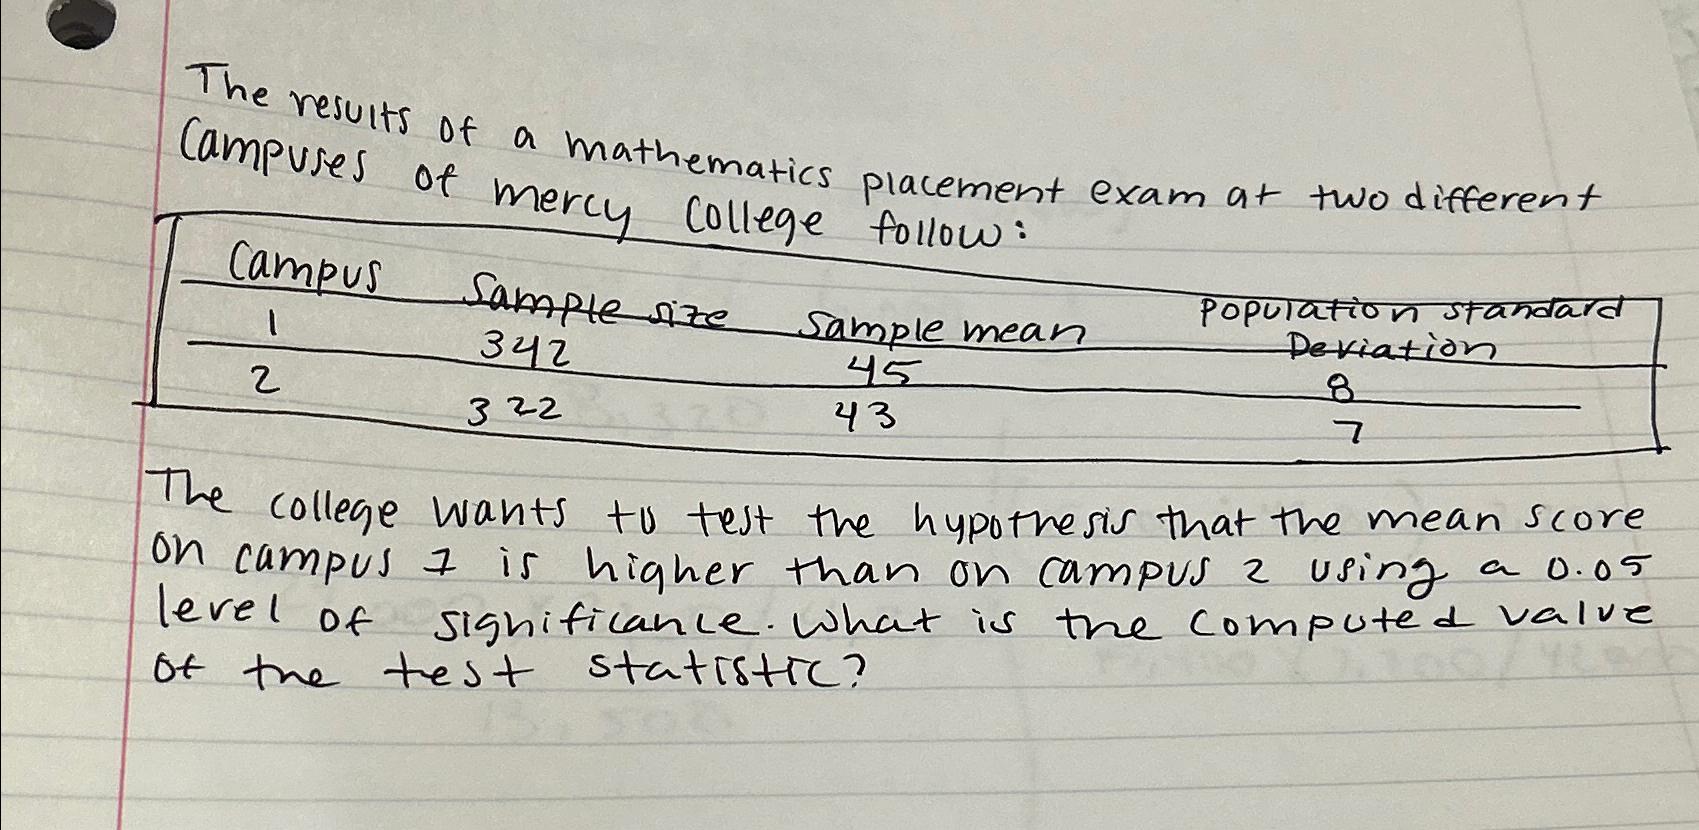 The results of a mathematics placement exam at two different
Campuses of mercy College follow:
Campus Sample size Sample mean Population standard Deviation
1 342 45 8
2 322 43 7
The college wants to test the hypothesis that the mean score
on campus 1 is higher than on campus 2 using a 0.05
level of significance. What is the computed value
of the test statistic?